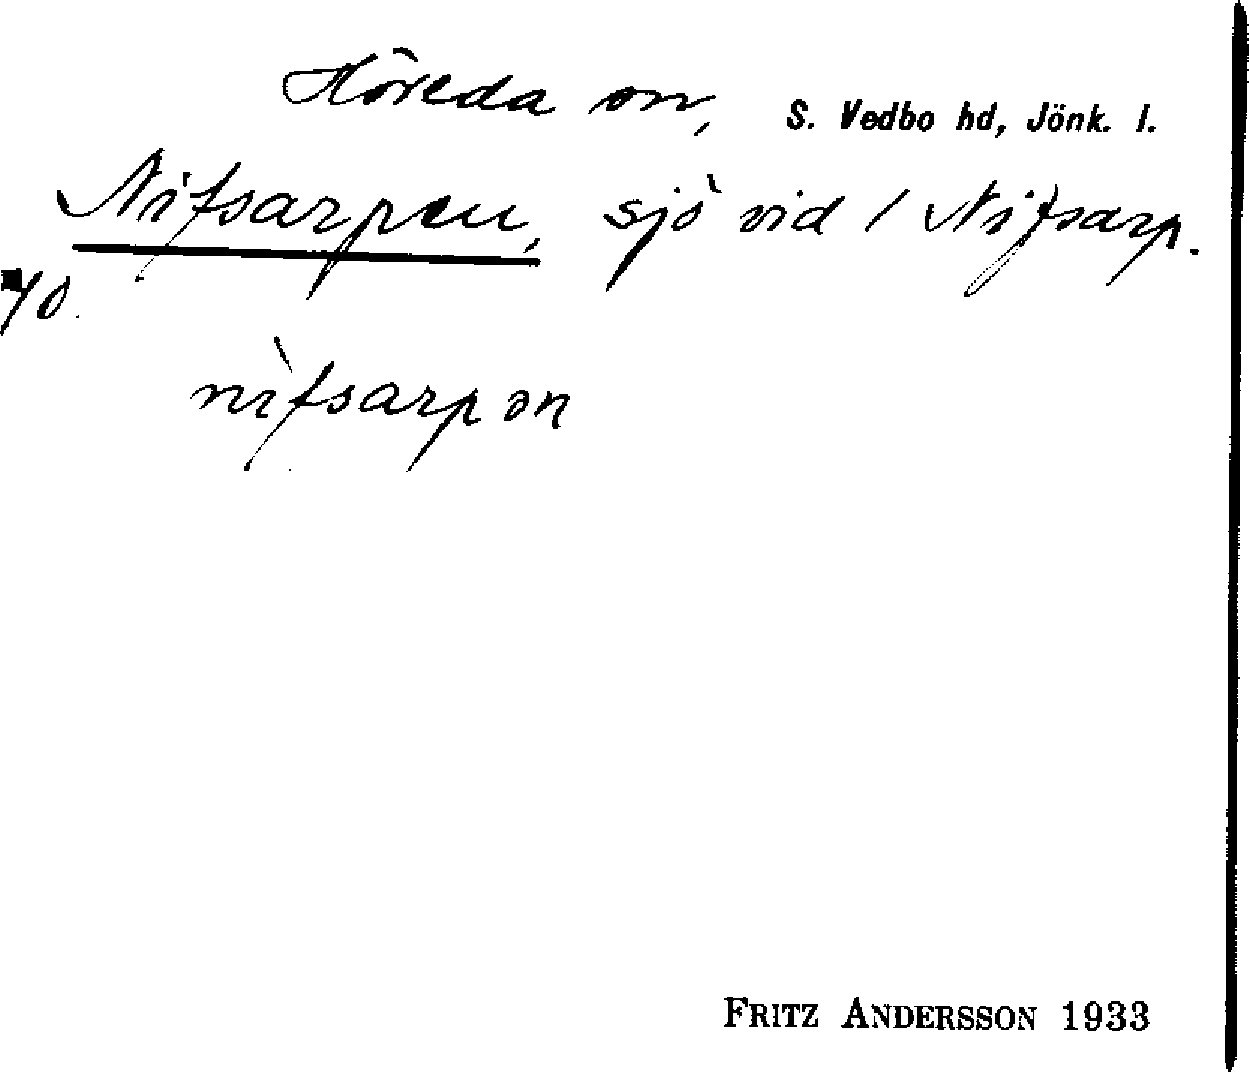 Höreda sn, S. Vedbo hd, Jönk. l.
Nifsarpen, sjö vid / Nifsarp.
70.
nìfsarpən
FRITZ ANDERSSON 1933